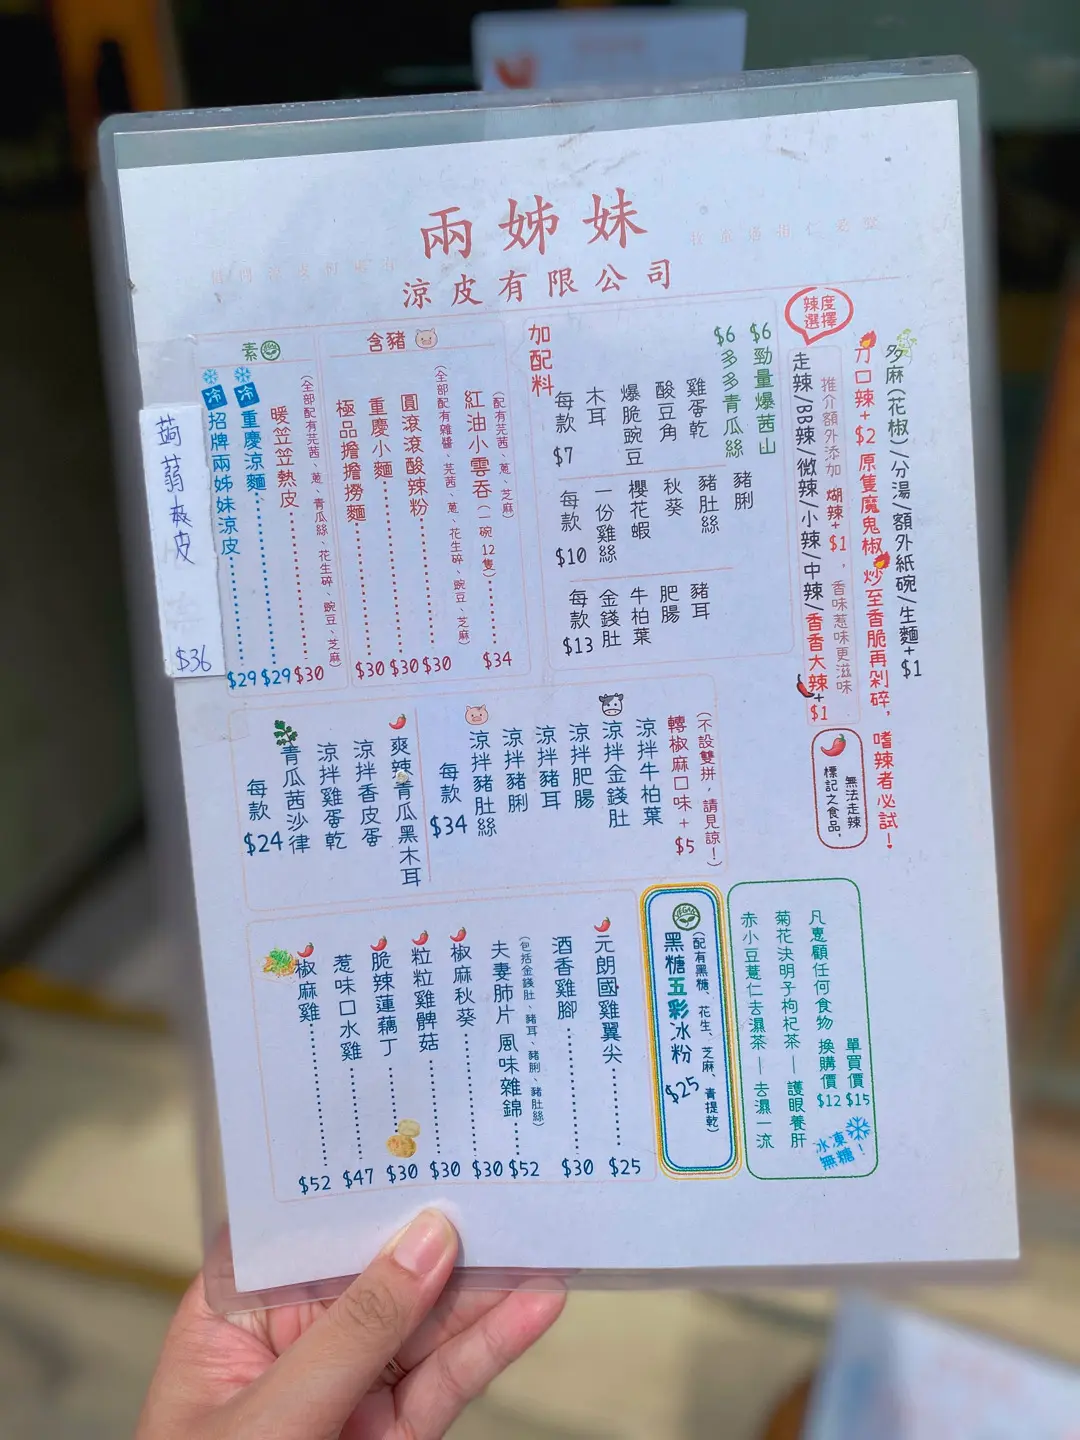 兩姊妹
涼皮有限公司
蒟蒻涼皮
$36
素
冷 招牌兩姊妹涼皮 $29
冷 重慶涼麵 $29
暖笠笠熱皮 $30
(全部配有芫茜、蔥、青瓜絲、花生碎、豌豆、芝麻)
含豬
極品擔擔撈麵 $30
重慶小麵 $30
圓滾滾酸辣粉 $30
(全部配有雜醬、芫茜、蔥、花生碎、豌豆、芝麻)
紅油小雲吞(一碗12隻) $34
(配有芫茜、蔥、芝麻)
加配料
$6 勁量爆茜山
$6 多多青瓜絲
雞蛋乾
酸豆角
爆脆豌豆
木耳
每款 $7
豬脷
豬肚絲
秋葵
櫻花蝦
一份雞絲
每款 $10
豬耳
肥腸
牛柏葉
金錢肚
每款 $13
辣度選擇
多麻(花椒)/分湯/額外紙碗/生麵+$1
冇口辣+$2 原隻魔鬼椒炒至香脆再剁碎，嗜辣者必試！
推介額外添加 煳辣+$1，香味惹味更滋味
走辣/BB辣/微辣/小辣/中辣/香香大辣+$1
無法走辣
標記之食品，
爽辣青瓜黑木耳
涼拌香皮蛋
涼拌雞蛋乾
青瓜茜沙律
每款 $24
(不設雙拼，請見諒！)
轉椒麻口味+$5
涼拌牛柏葉
涼拌金錢肚
涼拌肥腸
涼拌豬耳
涼拌豬脷
涼拌豬肚絲
每款 $34
元朗國雞翼尖 $25
酒香雞腳 $30
夫妻肺片 風味雜錦 $52
(包括金錢肚、豬耳、豬脷、豬肚絲)
椒麻秋葵 $30
粒粒雞髀菇 $30
脆辣蓮藕丁 $30
惹味口水雞 $47
椒麻雞 $52
VEGAN
黑糖五彩冰粉 $25
(配有黑糖、花生、芝麻、青提乾)
凡惠顧任何食物 換購價 $12
單買價 $15
菊花決明子枸杞茶—護眼養肝
赤小豆薏仁去濕茶—去濕一流
冰凍無糖！